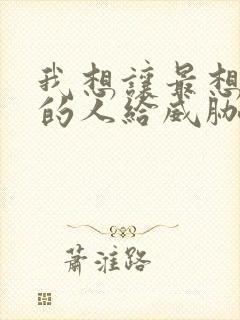 我想讓最想
的人給威脅
蕭淮路